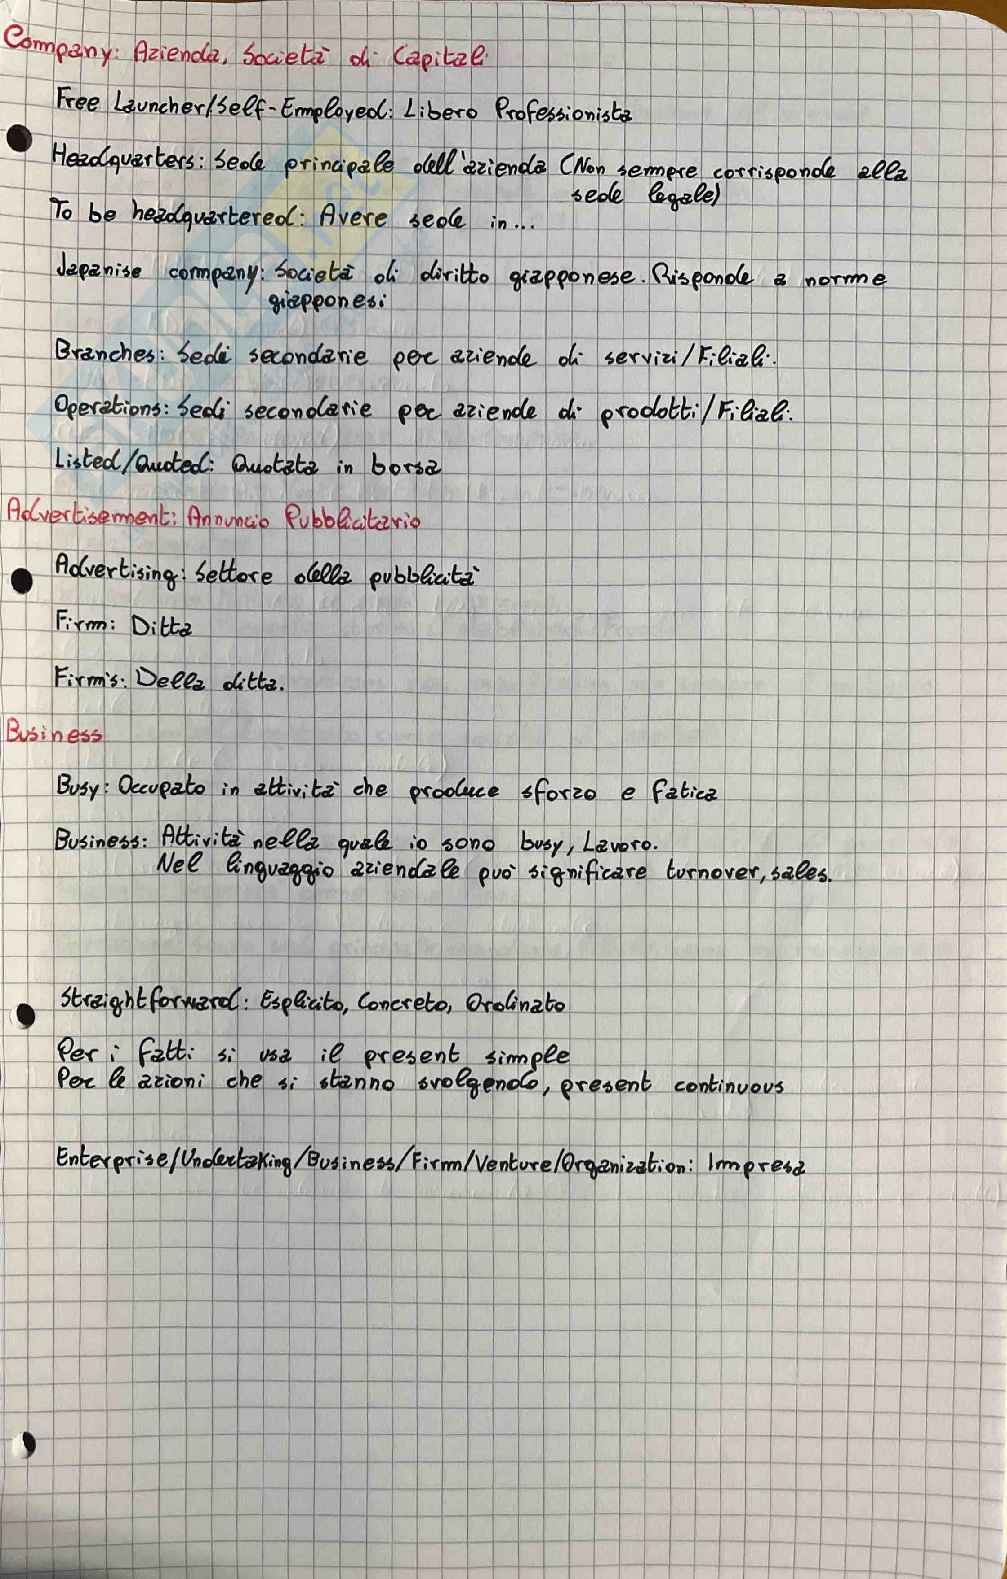 Company: Azienda, Società di Capitali
Free Launcher/Self-Employed: Libero Professionista
Headquarters: Sede principale dell'azienda (Non sempre corrisponde alla
sede legale)
To be headquartered: Avere sede in...
Japanise company: Società di diritto giapponese. Risponde a norme
giapponesi
Branches: Sedi secondarie per aziende di servizi/Filiali.
Operations: Sedi secondarie per aziende di prodotti/Filiali.
Listed/Quoted: Quotata in borsa
Advertisement: Annuncio Pubblicitario
Advertising: Settore della pubblicità
Firm: Ditta
Firm's: Della ditta.
Business
Busy: Occupato in attività che produce sforzo e fatica
Business: Attività nella quale io sono busy, Lavoro.
Nel linguaggio aziendale può significare turnover, sales.
Straightforward: Esplicito, Concreto, Ordinato
Per i fatti si usa il present simple
Per le azioni che si stanno svolgendo, present continuous
Enterprise/Undertaking/Business/Firm/Venture/Organization: Impresa